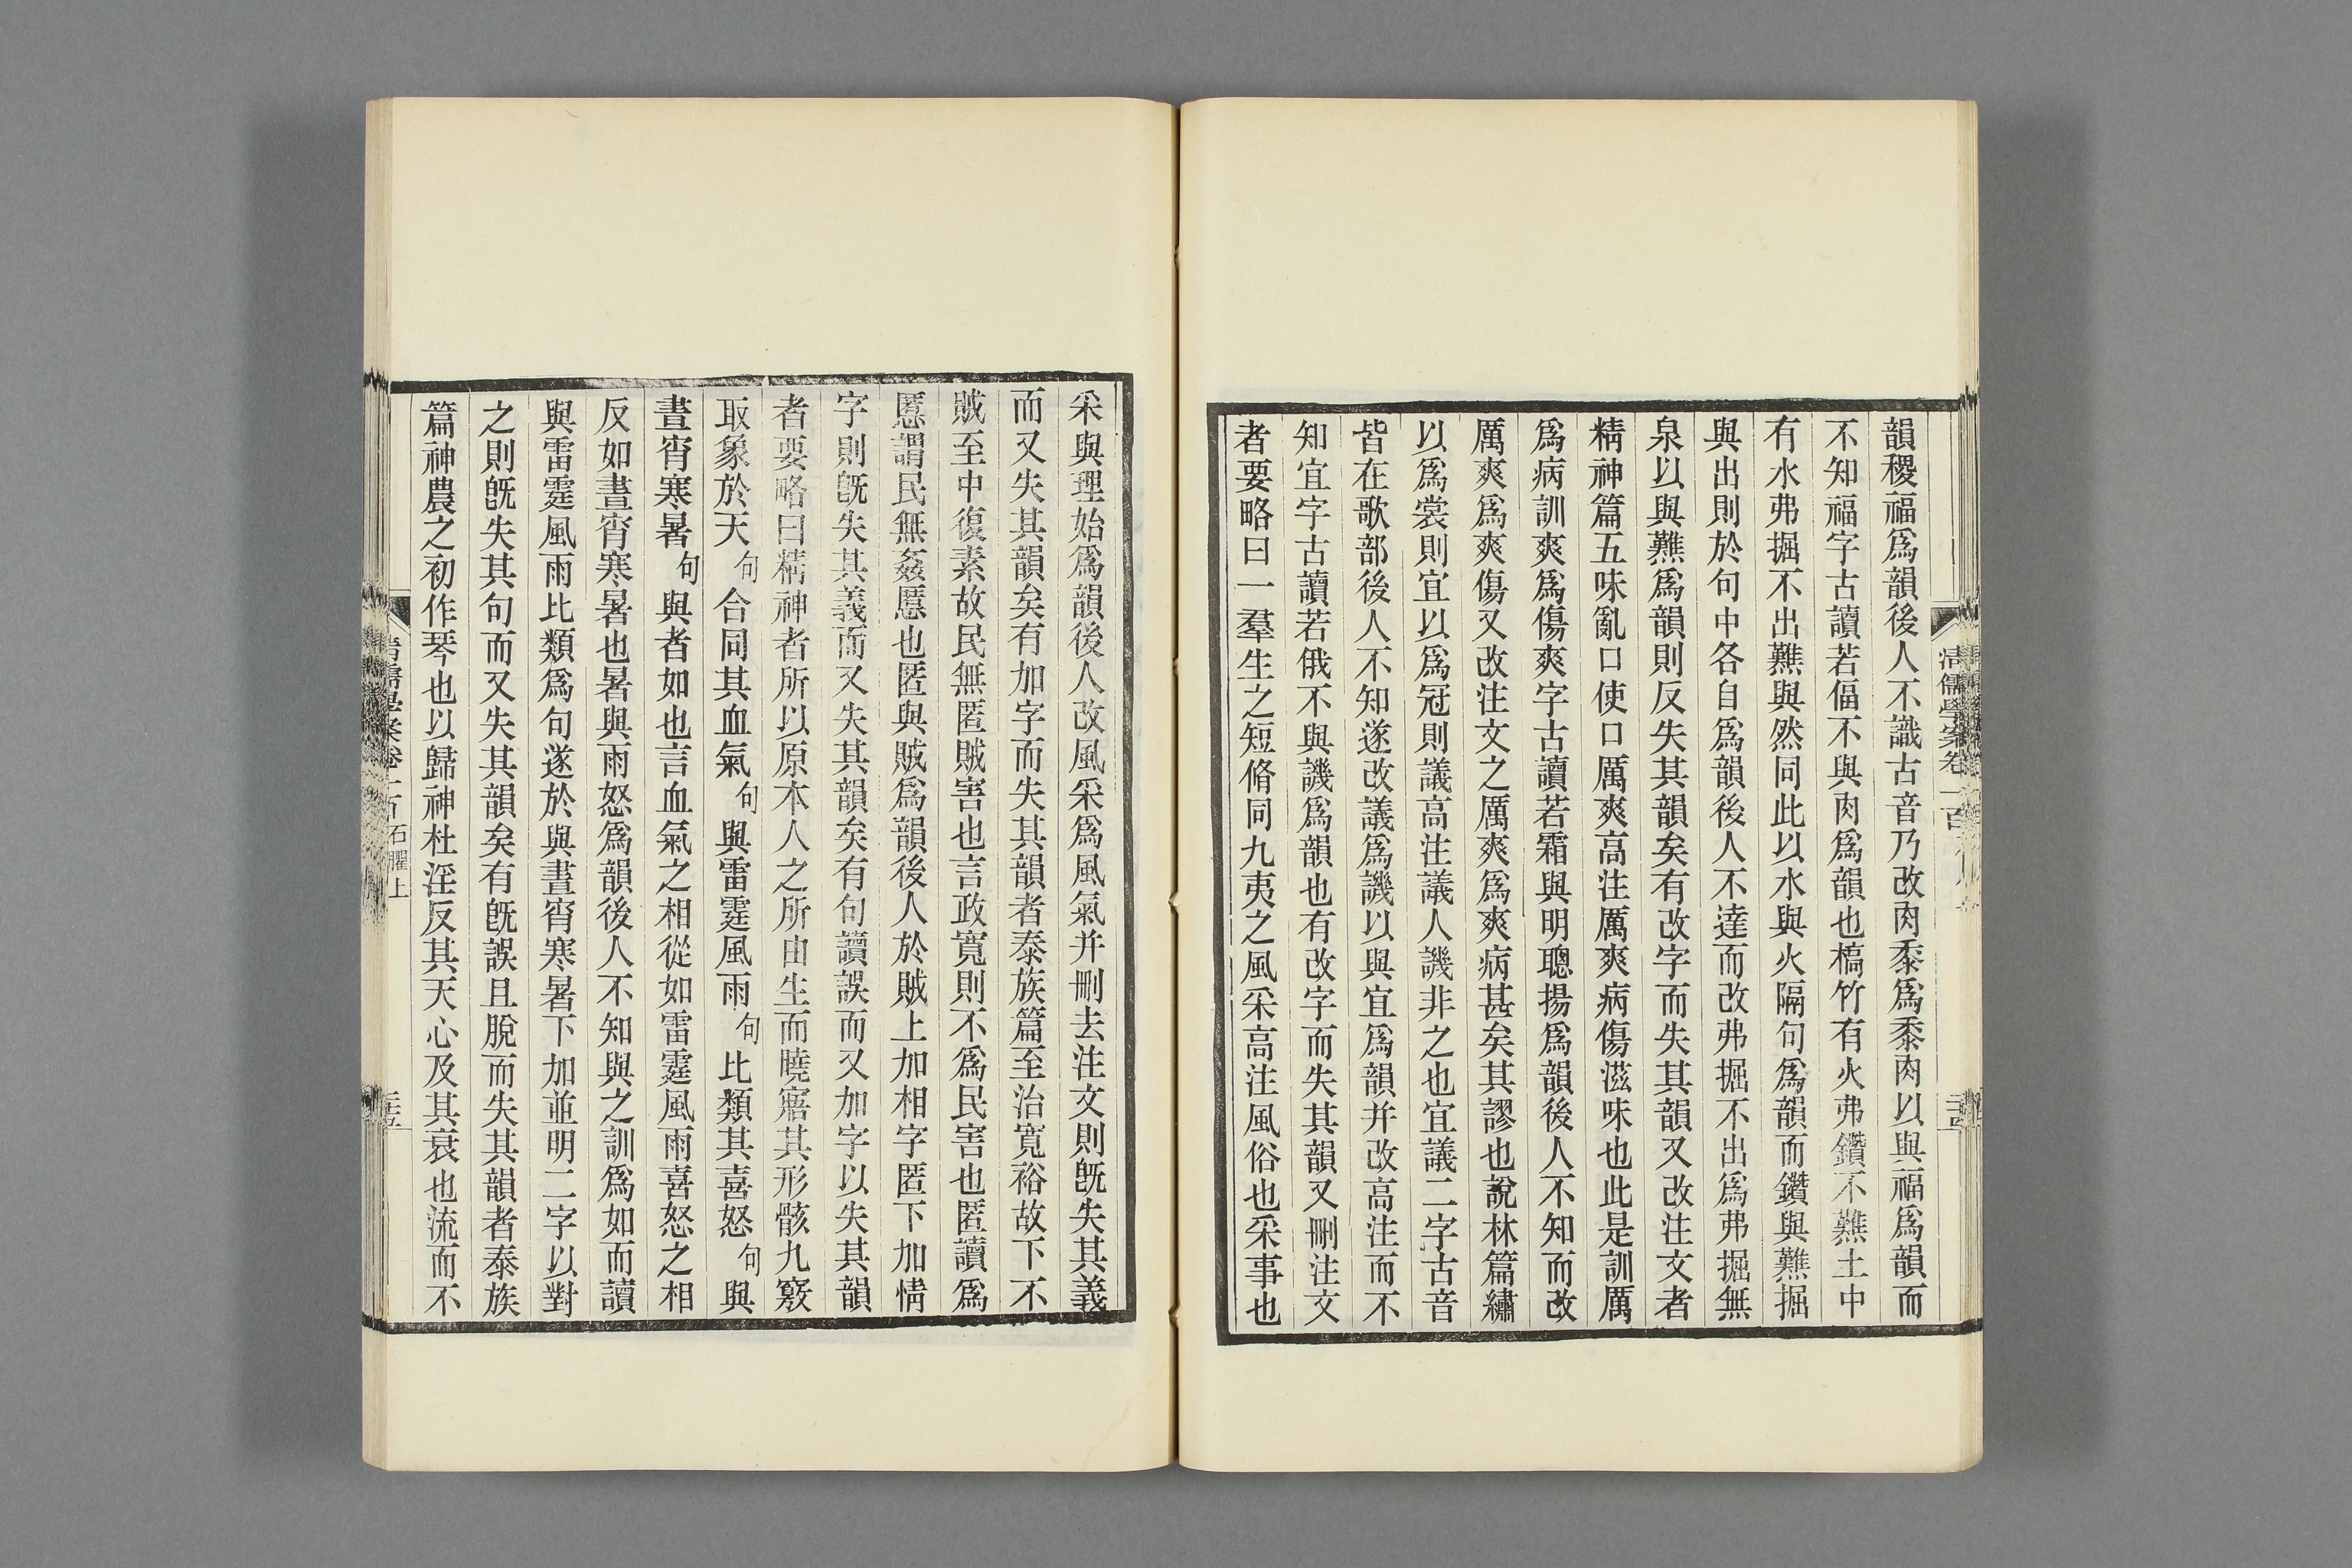 韻稷福爲韻後人不識古音乃改肉黍爲黍肉以與福爲韻而
不知福字古讀若偪不與肉爲韻也槁竹有火弗鑽不難土中
有水弗掘不出難與然同此以水與火隔句爲韻而鑽與難掘
與出則於句中各自爲韻後人不達而改弗掘不出爲弗掘無
泉以與難爲韻則反失其韻矣有改字而失其韻又改注文者
精神篇五味亂口使口厲爽高注厲爽病傷滋味也此是訓厲
爲病訓爽爲傷爽字古讀若霜與明聰揚爲韻後人不知而改
厲爽爲爽傷又改注文之厲爽爲爽病甚矣其謬也說林篇繡
以爲裳則宜以爲冠則議高注議人譏非之也宜議二字古音
皆在歌部後人不知遂改議爲譏以與宜爲韻并改高注而不
知宜字古讀若俄不與譏爲韻也有改字而失其韻又刪注文
者要略曰一羣生之短脩同九夷之風采高注風俗也采事也
清儒學案卷一百
采與理始爲韻後人改風采爲風氣并刪去注文則旣失其義
而又失其韻矣有加字而失其韻者泰族篇至治寬裕故下不
賊至中復素故民無匿賊害也言政寬則不爲民害也匿讀爲
慝謂民無姦慝也匿與賊爲韻後人於賊上加相字匿下加情
字則旣失其義而又失其韻矣有句讀誤而又加字以失其韻
者要略曰精神者所以原本人之所由生而曉寤其形骸九竅
取象於天句合同其血氣句與雷霆風雨句比類其喜怒句與
晝宵寒暑句與者如也言血氣之相從如雷霆風雨喜怒之相
反如晝宵寒暑也暑與雨怒爲韻後人不知與之訓爲如而讀
與雷霆風雨比類爲句遂於與晝宵寒暑下加並明二字以對
之則旣失其句而又失其韻矣有旣誤且脫而失其韻者泰族
篇神農之初作琴也以歸神杜淫反其天心及其衰也流而不
清儒學案卷一百 石臞上